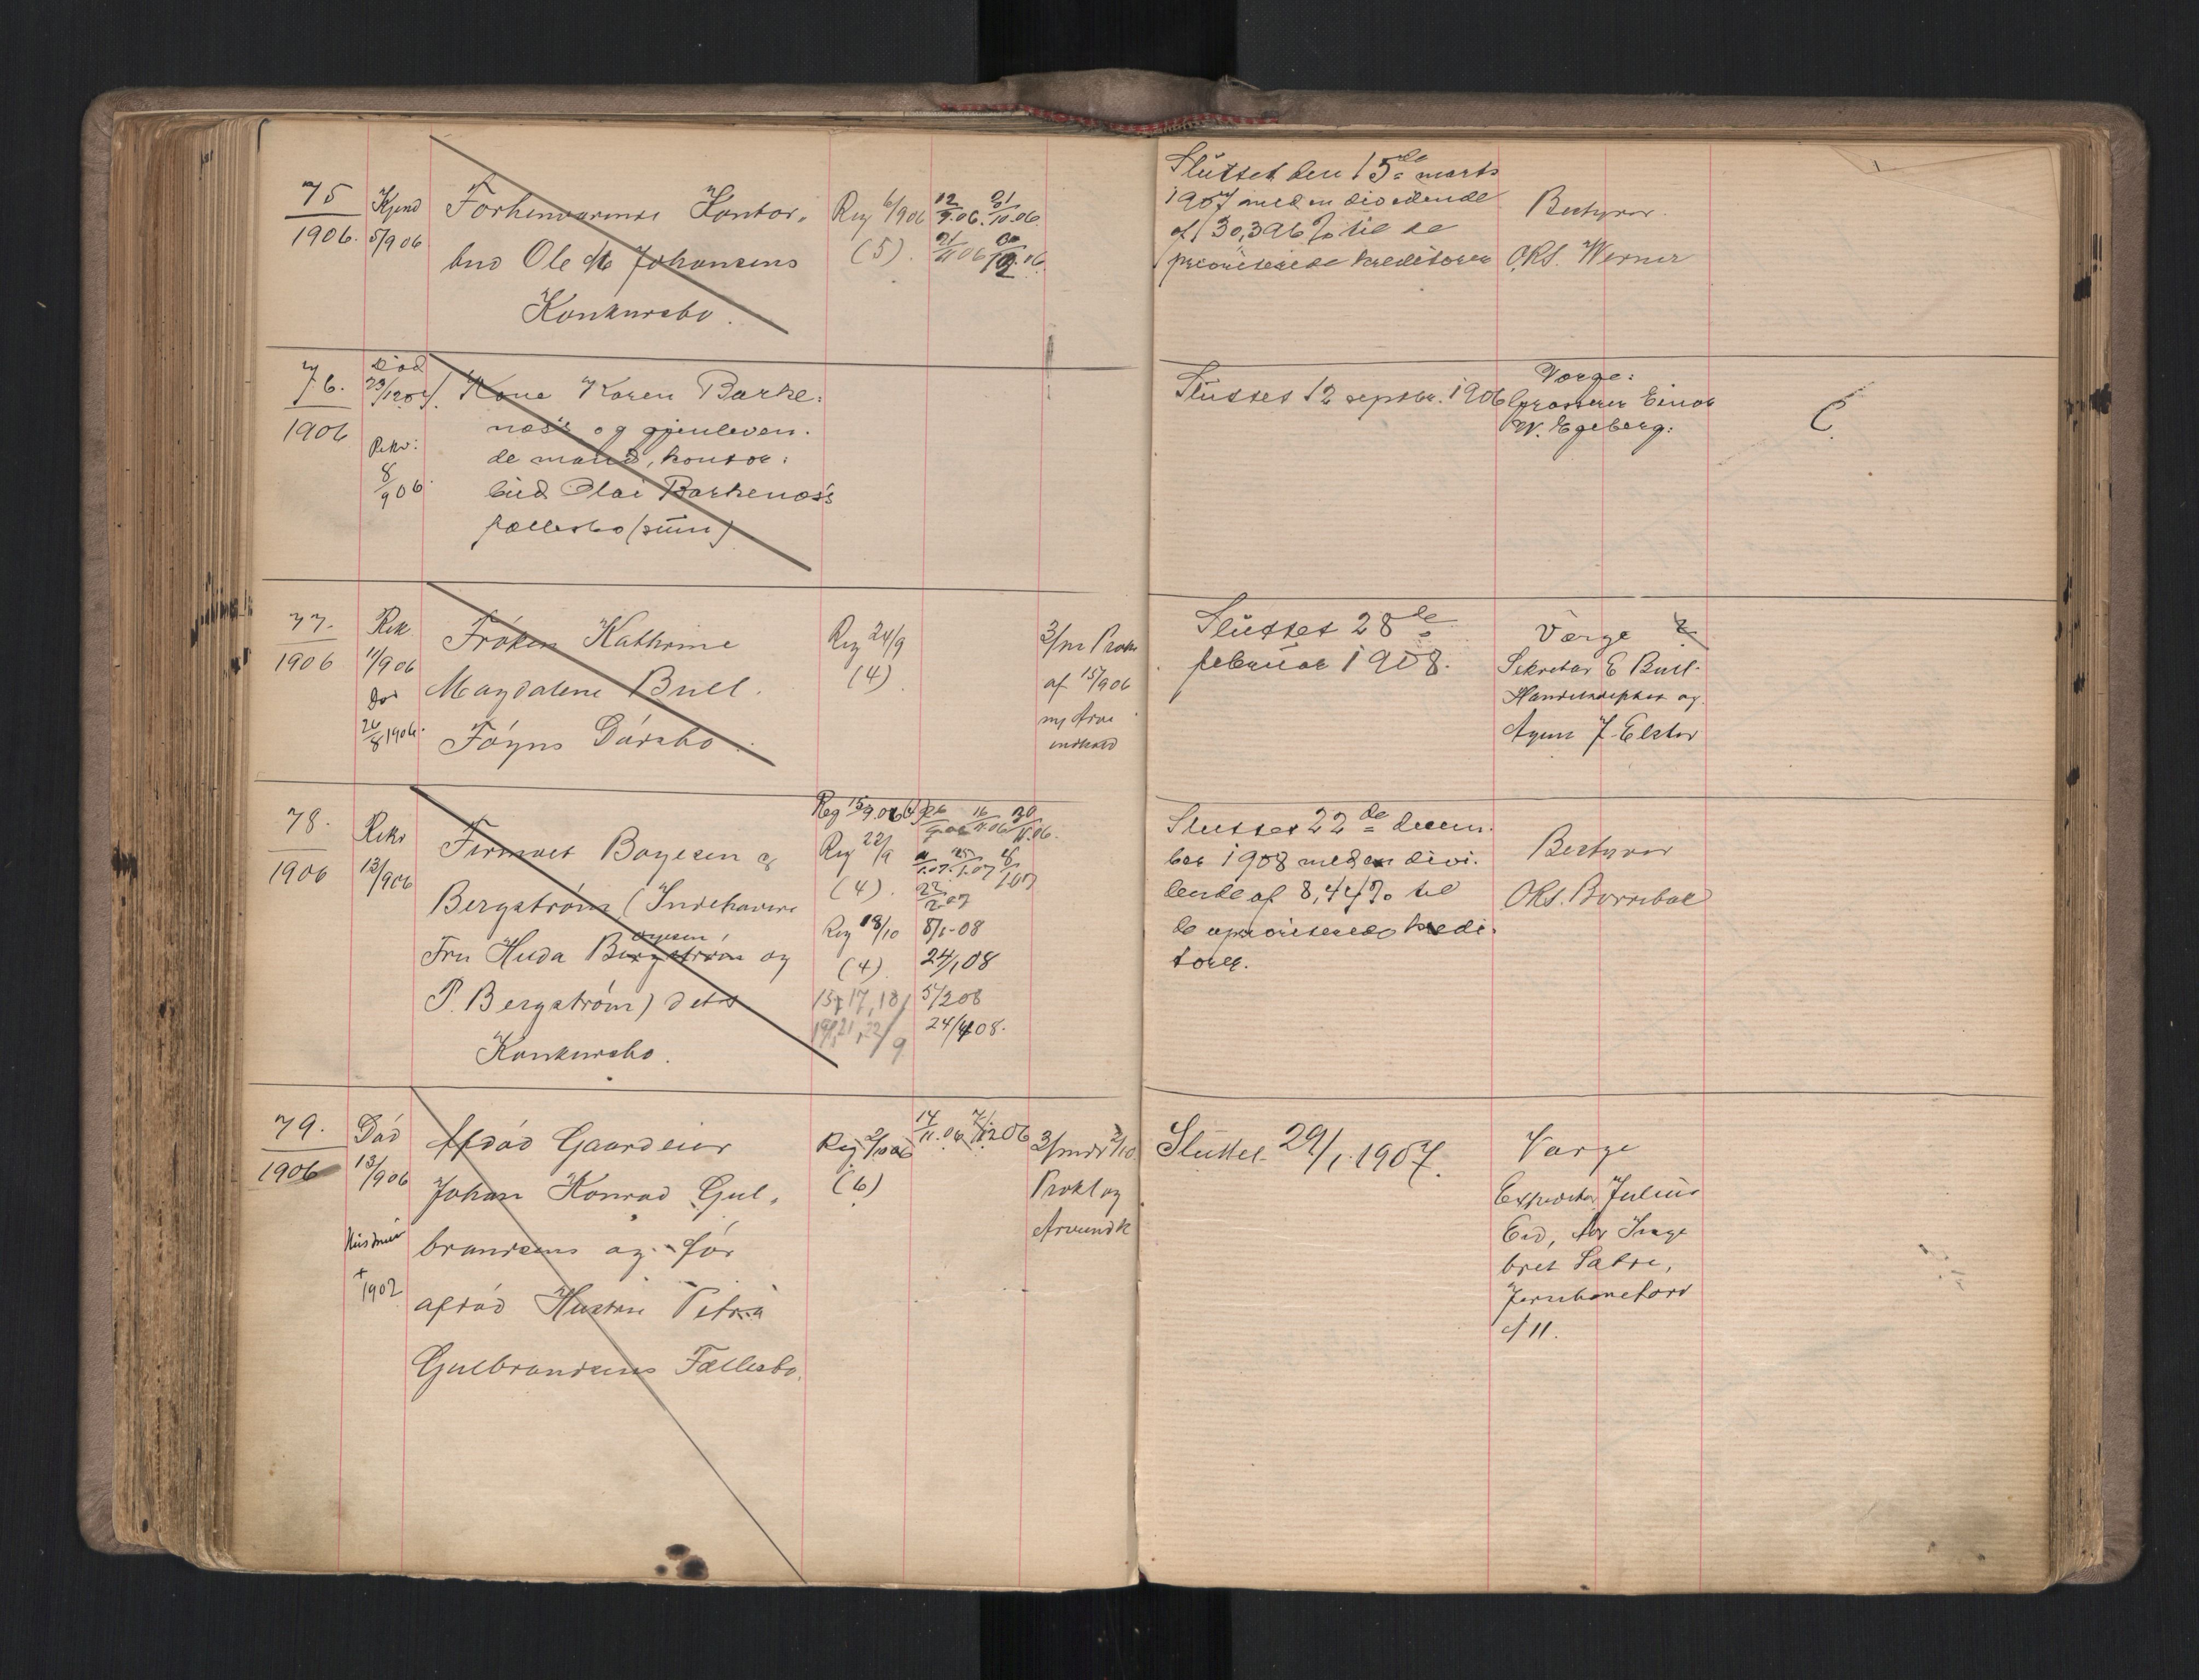 75
1906.
Kjend
5/9 06
Forhenværende Kontor-
bud Ole M Johansens
Konkursbo.
Reg 6/9 06
(5).
12/9.06. 31/10.06.
21/11 06
Sluttet den 15de marts
1907 med en dividende
af 30,396 % til de
prioriterede kreditorer
Bestyrer.
ORS. Werner
76.
1906
Død
Rekv:
8/9 06
Kone Karen Barke-
næs's og gjenleven-
de mand, kontor-
bud Olai Barkenæs's
fællesbo (
Sluttet 12 septbr. 1906
Værge:
Grosserer Einar
W. Egeberg.
C.
77.
1906
Rek
11/9 06
Død
26/8 1906.
Frøken Kathrine
Magdalene Bull.
Føyns Dødsbo.
Reg 24/9
(4)
3/m Prok
af 15/9 06
indkald
Sluttet 28de
februar 1908.
Værge
Sekretær E Bull.
og
J. Elster
78.
1906
Rekv
13/9 06
Firmaet Boyesen &
Bergstrøm (Indehavere
oyesen,
Fru Hulda Bergstrøm og
P. Bergström) dets
Konkursbo.
Reg 22/9
(4).
Reg 18/10
(4)
15, 17, 18,
19, 21, 22/9
8/1-08
24/1 08
5/2 08
24/4 08.
Sluttet 22de decem-
ber 1908 med en divi-
dende af 8,44 % til
de uprioriterede kredi-
torer.
Bestyrer
ORS. Borrebæl
79.
1906
Død
13/9 06
Hustruen
+
1902
Afdød Gaardeier
Johan Konrad Gul-
brandsens og før
afdød Hustru Petra
Gulbrandsens Fællesbo.
Reg 2/10 06
(6)
14/11.06
3/mdr 2/10
Prokl og
Arveindk
Sluttet 29/1. 1907.
Værge
Expeditør Julius
Eid, Adr Inge
bret Sætre,
Jernbanetorv
11.